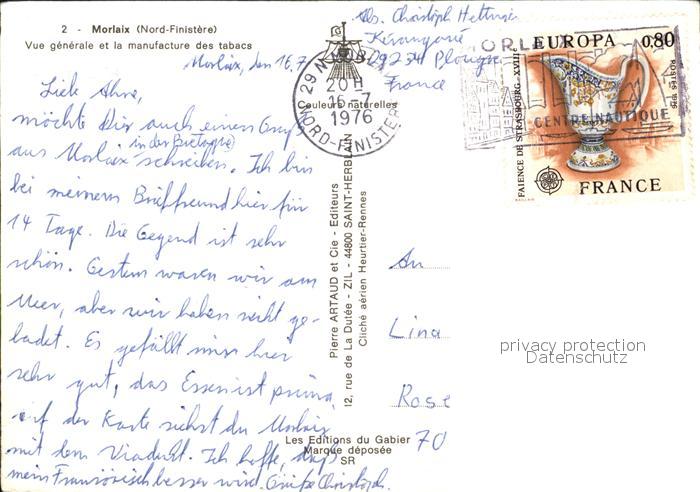 2 - Morlaix (Nord-Finistère)
Vue générale et la manufacture des tabacs
Abs. Christoph
29234 Plouga
France
Morlaix, den 16.7
Liebe Ahne,
möchte Dir auch einen Gruß
aus Morlaix (in der Bretagne) schreiben. Ich bin
bei meinem Brieffreund hier für
14 Tage. Die Gegend ist sehr
schön. Gestern waren wir am
Meer, aber wir haben nicht ge-
badet. Es gefällt mir hier
sehr gut, das Essen ist prima
auf der Karte siehst du Morlaix
mit dem Viadukt. Ich hoffe, daß
mein Französisch besser wird. Grüße Christoph.
Couleurs naturelles
Pierre ARTAUD et Cie - Editeurs
12, rue de La Dutée - ZIL - 44800 SAINT-HERBLAIN
Cliché aérien Heurtier-Rennes
Les Editions du Gabier
Marque déposée
SR
29 MORLAIX
20 H
16-7
1976
NORD-FINISTERE
MORLAIX
CENTRE NAUTIQUE
EUROPA 0,80
FAIENCE DE STRASBOURG - XVIIIe
POSTES 1976
FRANCE
An
Lina
Rose
70
privacy protection
Datenschutz